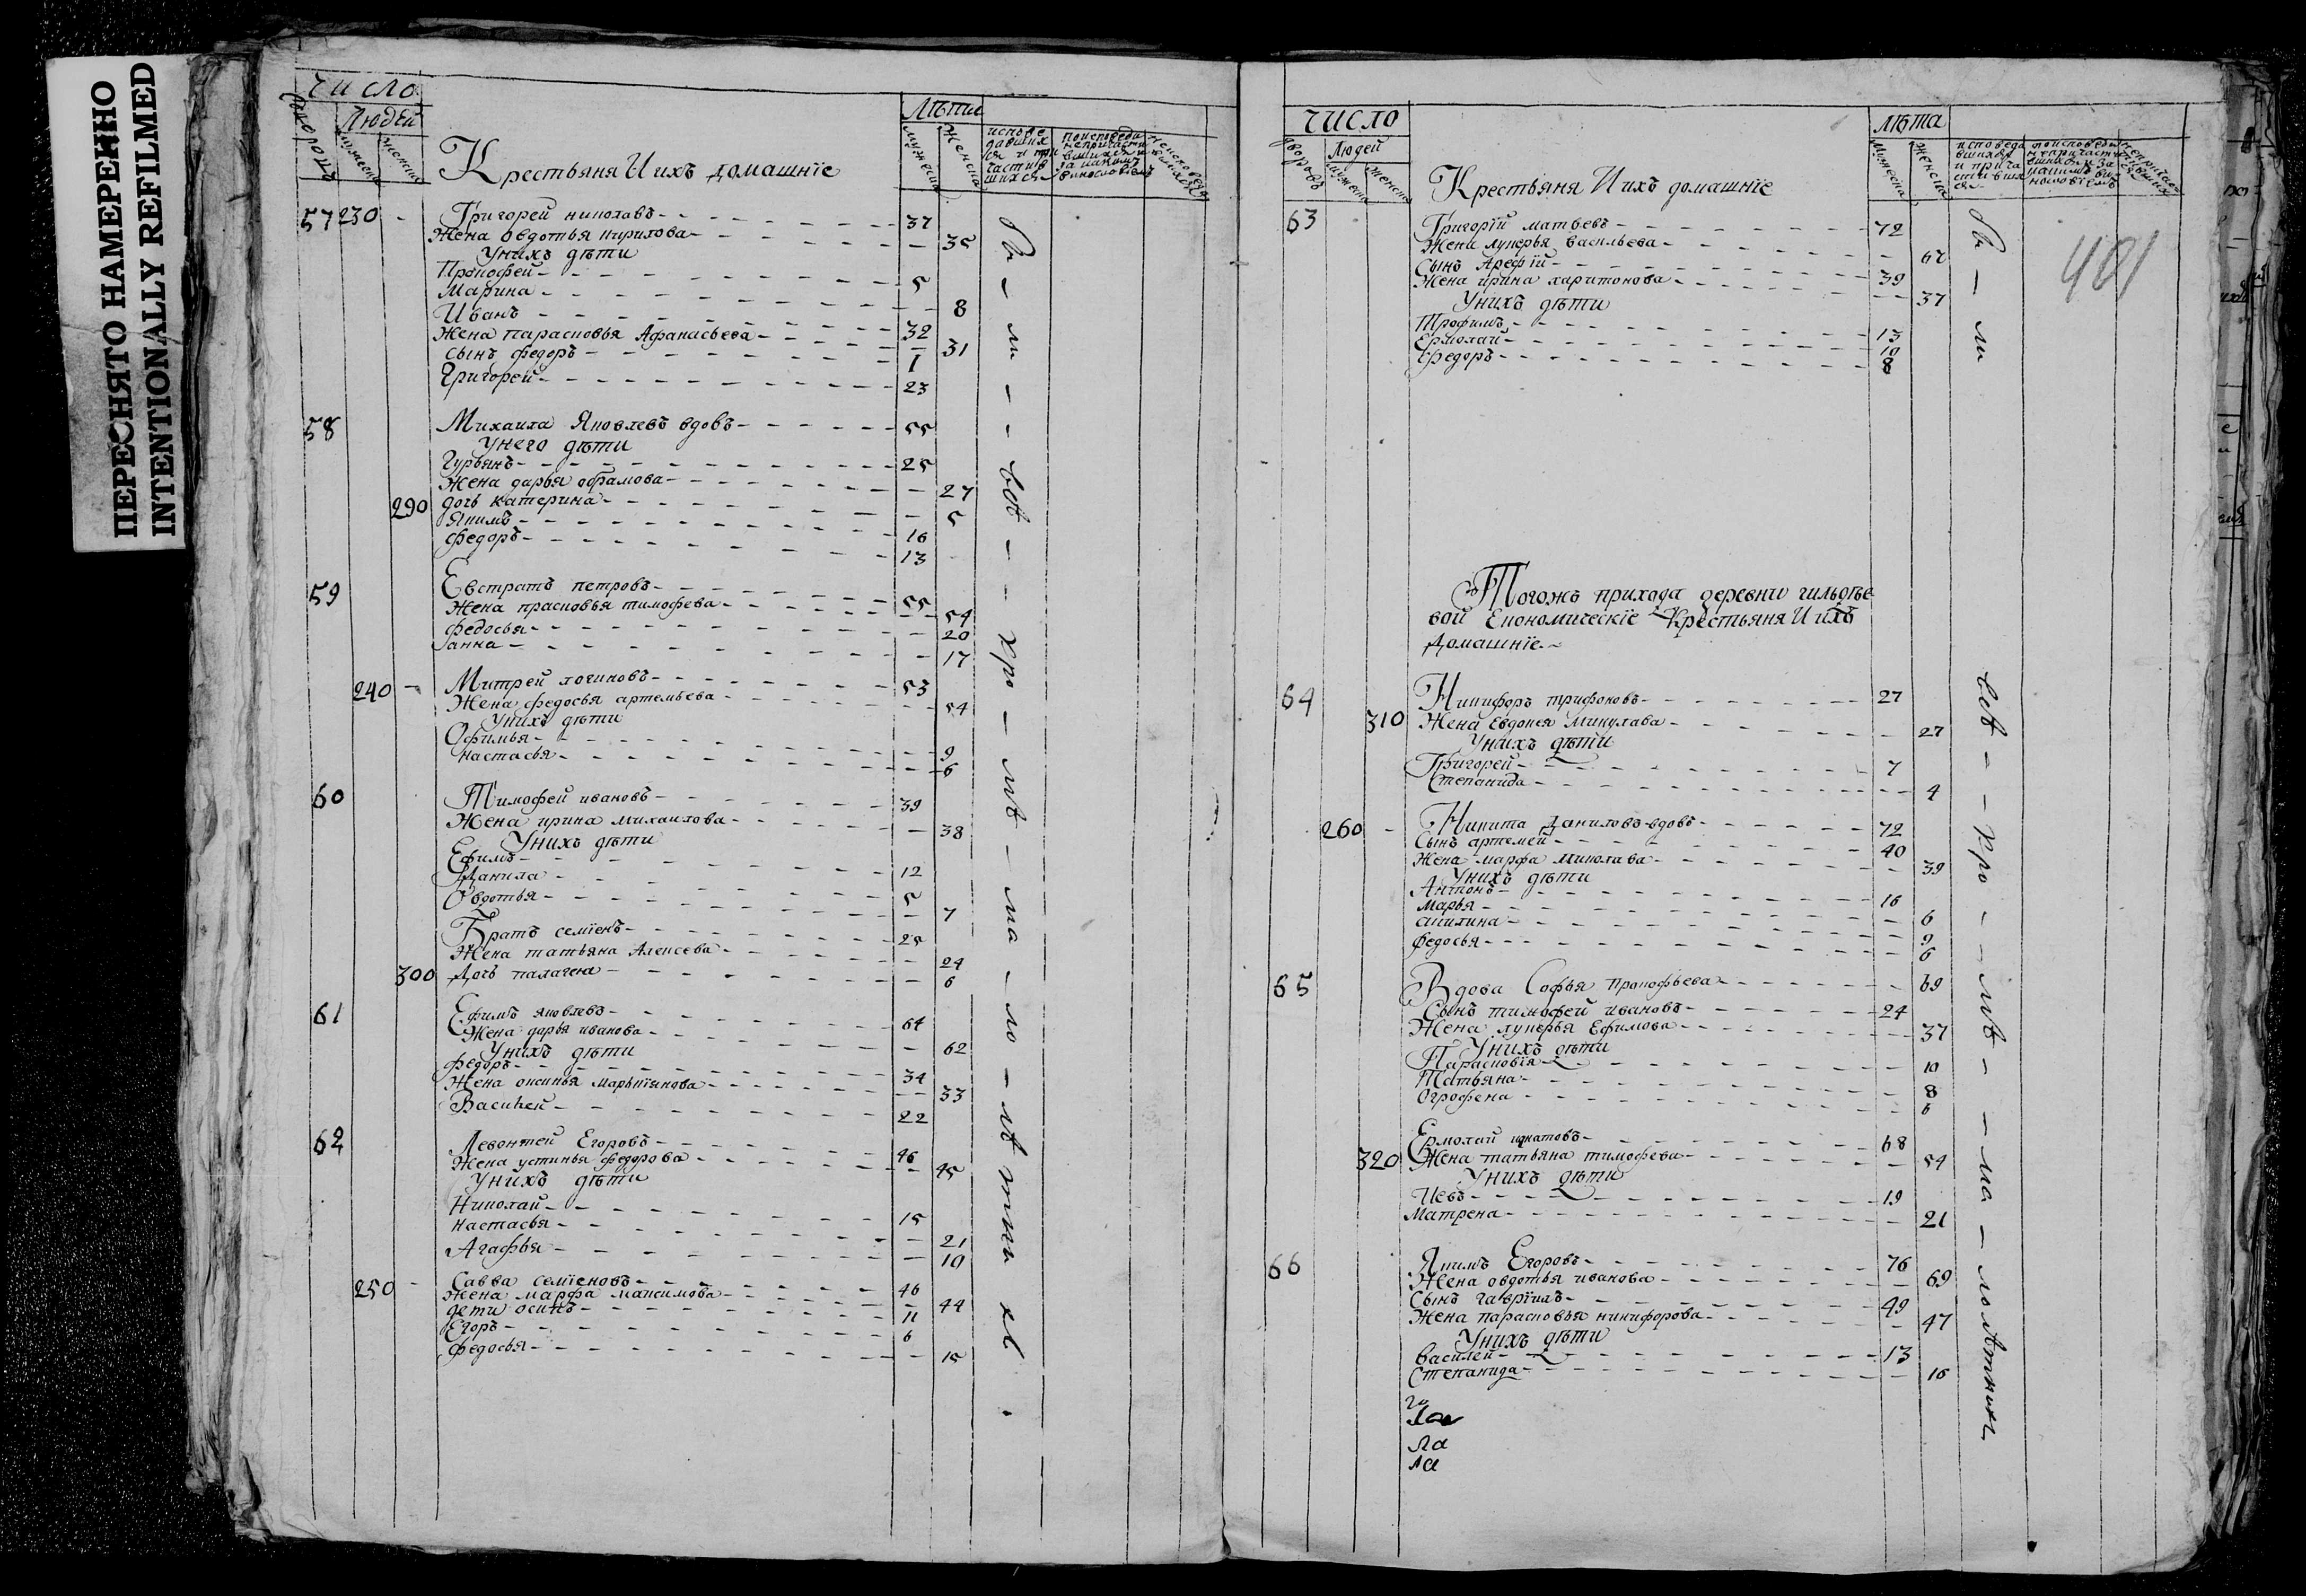 ПЕРЕСНЯТО НАМЕРЕННО
INTENTIONALLY REFILMED
число
Людей
Крестьяня И ихъ домашнїе
Лѣта
мужеска
женска
57 230 - Григорей николавъ - 37
Жена овдотья кирилова - 35
У нихъ дѣти
Прокофей - 5
Марина - 8
Иванъ - 32
Жена парасковья Афанасьева - 31
сынъ федоръ - 1
Григорей - 23
58 Михаила Яковлевъ вдовъ - 55
У него дѣти
Гурьянъ - 25
Жена дарья абрамова - 27
290 дочь катерина - 5
Якимъ - 16
федоръ - 13
59 Евстратъ петровъ - 55
Жена прасковья тимофева - 54
федосья - 20
анна - 17
240 - Митрей логиновъ - 53
Жена федосья артемьева - 54
У нихъ дѣти
Офимья - 9
настасья - 6
60 Тимофей ивановъ - 39
Жена ирина михаилова - 38
У нихъ дѣти
Ефимъ - 12
Данила - 5
Овдотья - 7
Братъ семїенъ - 25
Жена татьяна Алексева - 24
300 Дочь палагея - 6
61 Ефимъ яковлевъ - 64
Жена дарья иванова - 62
У нихъ дѣти
федоръ - 34
Жена оксинья - 33
Василей - 22
62 Левонтей Егоровъ - 46
Жена устинья федорова - 45
У нихъ дѣти
Николай - 15
настасья - 21
Агафья - 10
250 - Савва семїеновъ - 46
Жена марфа максимова - 44
дети осипъ - 11
Егоръ - 6
федосья - 15
число
дворовъ
Людей
Крестьяня И ихъ домашнїе
лѣта
мужеска
женска
401
63 Григорїй матвевъ - 72
Жена лукерья васильева - 67
Сынъ Арефїй - 39
Жена ирина харитонова - 37
У нихъ дѣти
Трофимъ - 13
Ермолай - 10
Федоръ - 8
Тогожъ прихода деревни
вой Економическїе Крестьяня И ихъ
Домашнїе
64 Никифоръ трифоновъ - 27
310 Жена Евдокея Микулава - 27
У нихъ дѣти
Григорей - 7
Степанида - 4
260 - Никита Даниловъ вдовъ - 72
Сынъ артемей - 40
Жена марфа Миколава - 39
У нихъ дѣти
Антонъ - 16
Марья - 6
акилина - 9
федосья - 6
65 Вдова Софья прокофьева - 69
Сынъ тимофей ивановъ - 24
Жена лукерья Ефимова - 37
У нихъ дѣти
Парасковїя - 10
Татьяна - 8
Огрофена - 6
Ермолай игнатовъ - 68
320 Жена татьяна тимофева - 54
У нихъ дѣти
Иевъ - 19
Матрена - 21
66 Якимъ Егоровъ - 76
Жена овдотья иванова - 69
Сынъ гаврїилъ - 49
Жена парасковья никифорова - 47
У нихъ дѣти
василей - 13
Степанида - 16
ла
ла